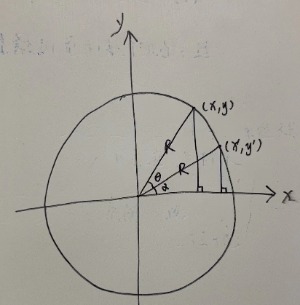 y
(x,y)
(x',y')
R
θ
R
α
x